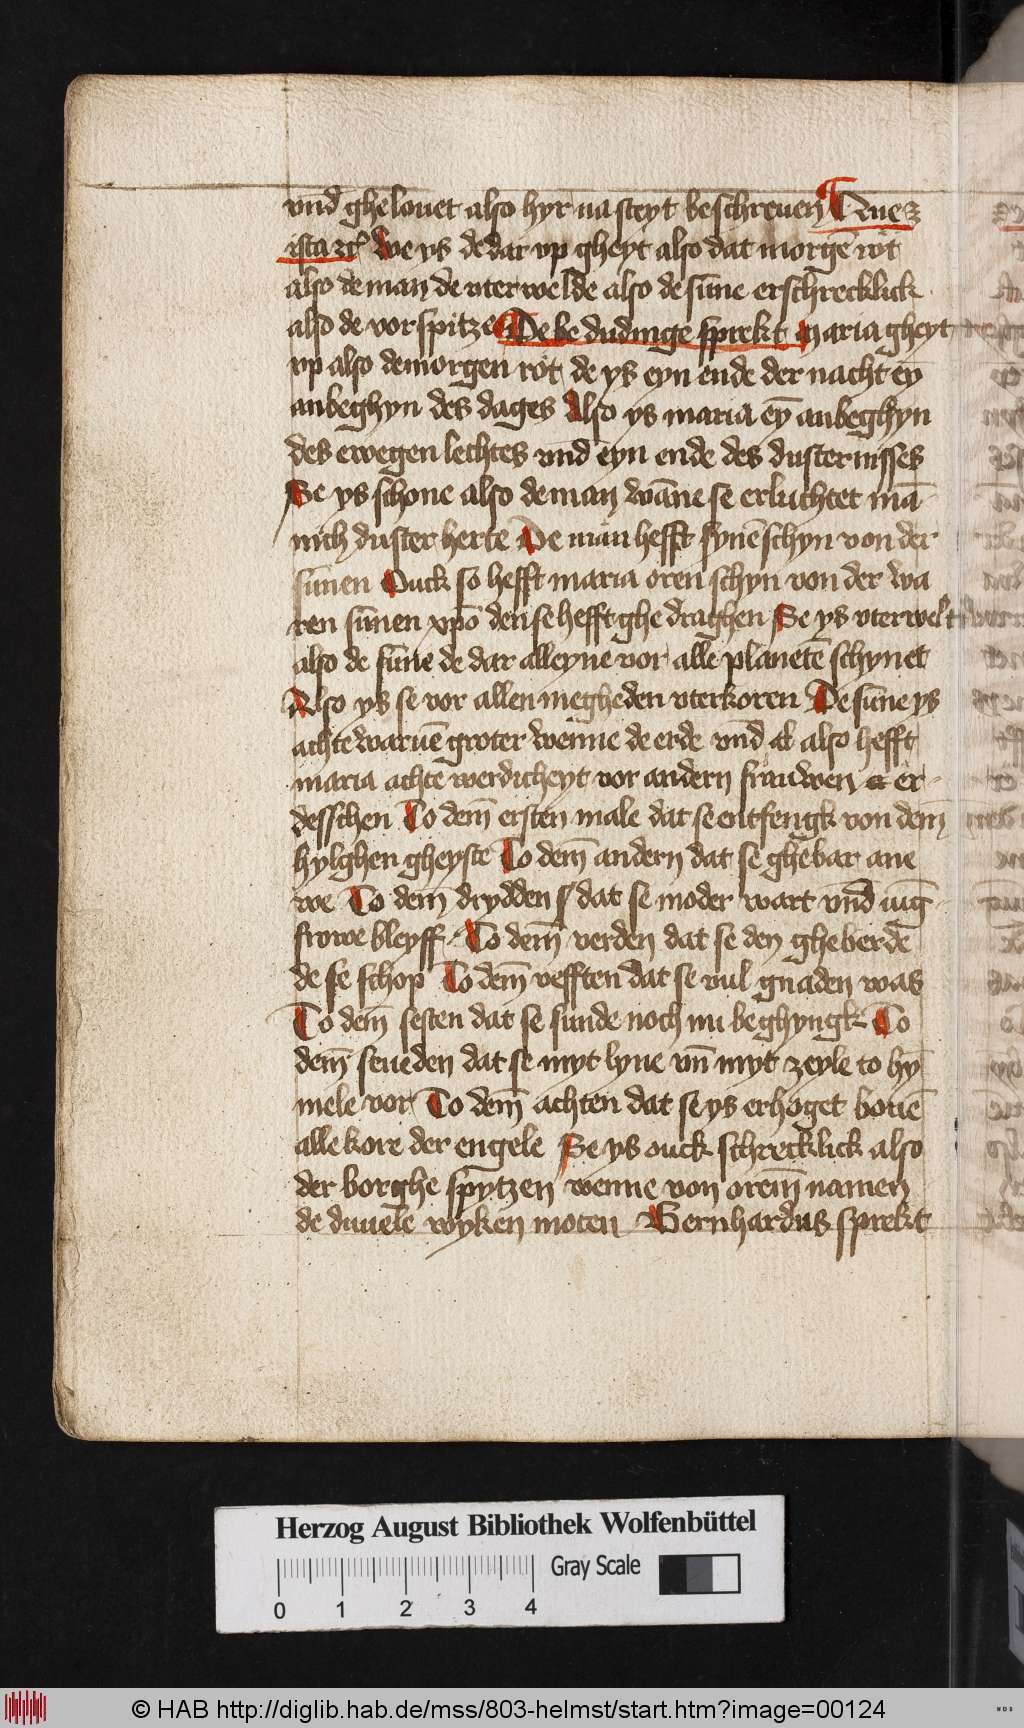 vnd ghelouet also hyr na steyt beschreuen Que ē
ista ꝛc̄ We ys de dar vp gheyt also dat morgē rot
also de man de vterwelde also de sūne erschrecklick
also de vorspitze De bedudinge sprekt Maria gheyt
vp also de morgen rot de ys eyn ende der nacht eȳ
anbeghyn des dages Also ys maria eȳ anbeghyn
des ewegen lechtes vnd eyn ende des dusternisses
Se ys schone also de man wāne se erluchtet mā
nich duster herte De man hefft synē schyn von der
sūnen Ouck so hefft maria oren schyn von der wa
ren sūnen xpō den se hefft ghedraghen Se ys vterwelt
also de sūne de dar alleyne vor alle planetē schynet
Also ys se vor allen megheden vterkoren De sūne ys
achtewaruē groter wenne de erde vnd also hefft
maria achte werdicheyt vor andern frauwen er
desschen To dem̄ ersten male dat se entfengk von dem̄
hylghen gheyste To dem̄ andern dat se ghebar ane
we To dem̄ drydden dat se moder wart vnd iūg
frowe bleyff To dem̄ verden dat se den gheberde
de se schop To dem̄ vefften dat se vul gnaden was
To dem̄ sesten dat se sunde noch nu beghyngk To
dem̄ seueden dat se myt lyue vn̄ myt zeyle to hȳ
mele vor To dem̄ achten dat se ys erhoget bouē
alle kore der engele Se ys ouck schrecklick also
der borghe spytzen wenne von orem̄ namen
de duuele wyken moten Bernhardus sprekt
Herzog August Bibliothek Wolfenbüttel
Gray Scale
0 1 2 3 4
© HAB http://diglib.hab.de/mss/803-helmst/start.htm?image=00124